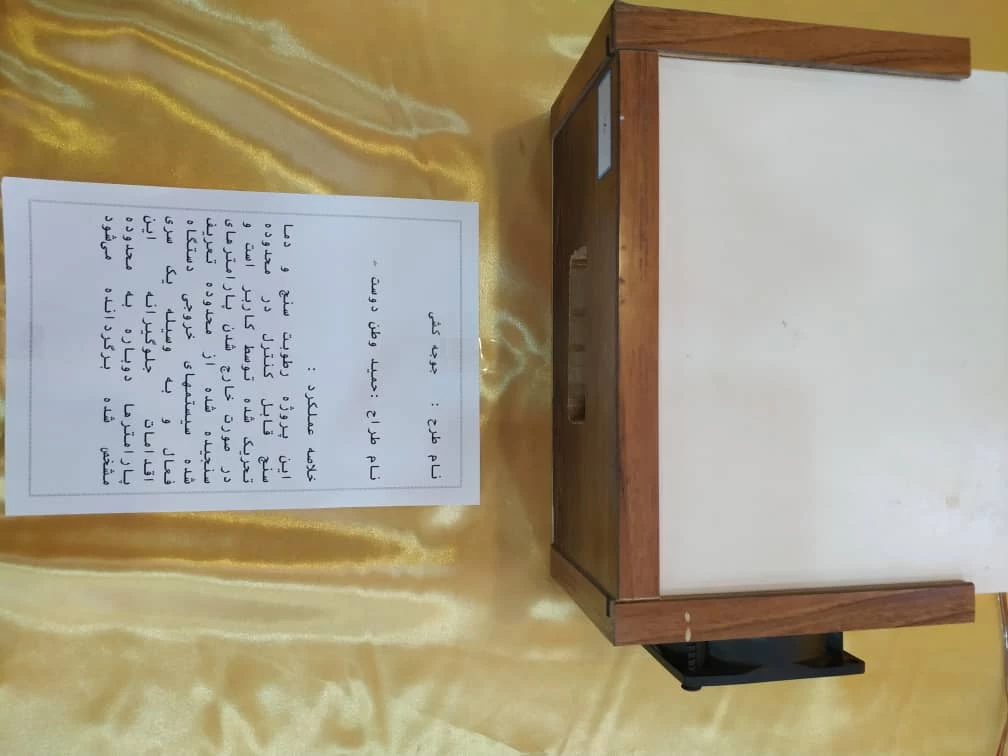 نام طرح : جوجه کشی
نام طراح :حمید وطن دوست -
خلاصه عملکرد :
این پروژه رطوبت سنج و دما
سنج قابل کنترل در محدوده
تحریک شده توسط کاربر است و
در صورت خارج شدن پارامترهای
سنجیده شده از محدوده تعریف
شده سیستمهای خروجی دستگاه
فعال و به وسیله یک سری
اقدامات جلوگیرانه این
پارامترها دوباره به محدوده
مشخص شده برگردانده میشود